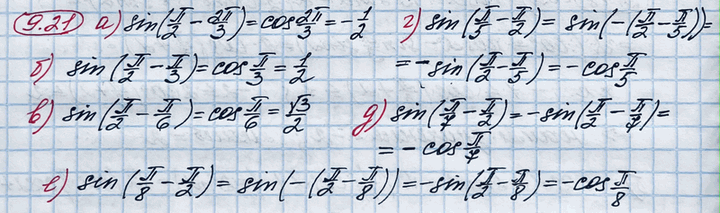 9.21 а) sin(π/2 - 2π/3) = cos 2π/3 = -1/2
б) sin(π/2 - π/3) = cos π/3 = 1/2
в) sin(π/2 - π/6) = cos π/6 = √3/2
г) sin(π/5 - π/2) = sin(-(π/2 - π/5)) =
= -sin(π/2 - π/5) = -cos π/5
д) sin(π/7 - π/2) = -sin(π/2 - π/7) =
= -cos π/7
е) sin(π/8 - π/2) = sin(-(π/2 - π/8)) = -sin(π/2 - π/8) = -cos π/8